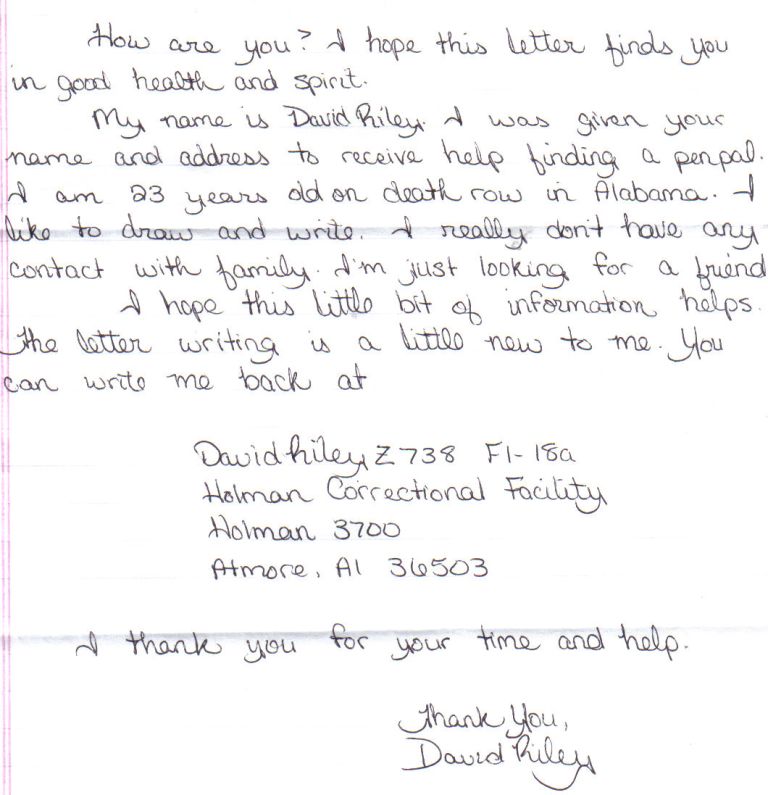 How are you? I hope this letter finds you
in good health and spirit.
My name is David Riley. I was given your
name and address to receive help finding a penpal.
I am 23 years old on death row in Alabama. I
like to draw and write. I really don't have any
contact with family. I'm just looking for a friend
I hope this little bit of information helps.
The letter writing is a little new to me. You
can write me back at
David Riley Z738 F1-18a
Holman Correctional Facility
Holman 3700
Atmore, Al 36503
I thank you for your time and help.
Thank You,
David Riley